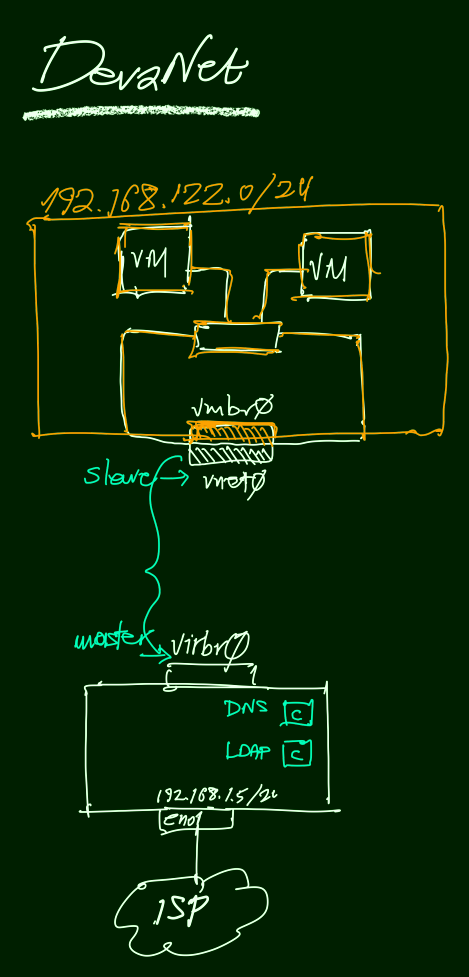 DevaNet
192.168.122.0/24
VM
VM
vmbr0
slave
vnet0
master
virbr0
DNS C
LDAP C
192.168.1.5/24
eno1
ISP